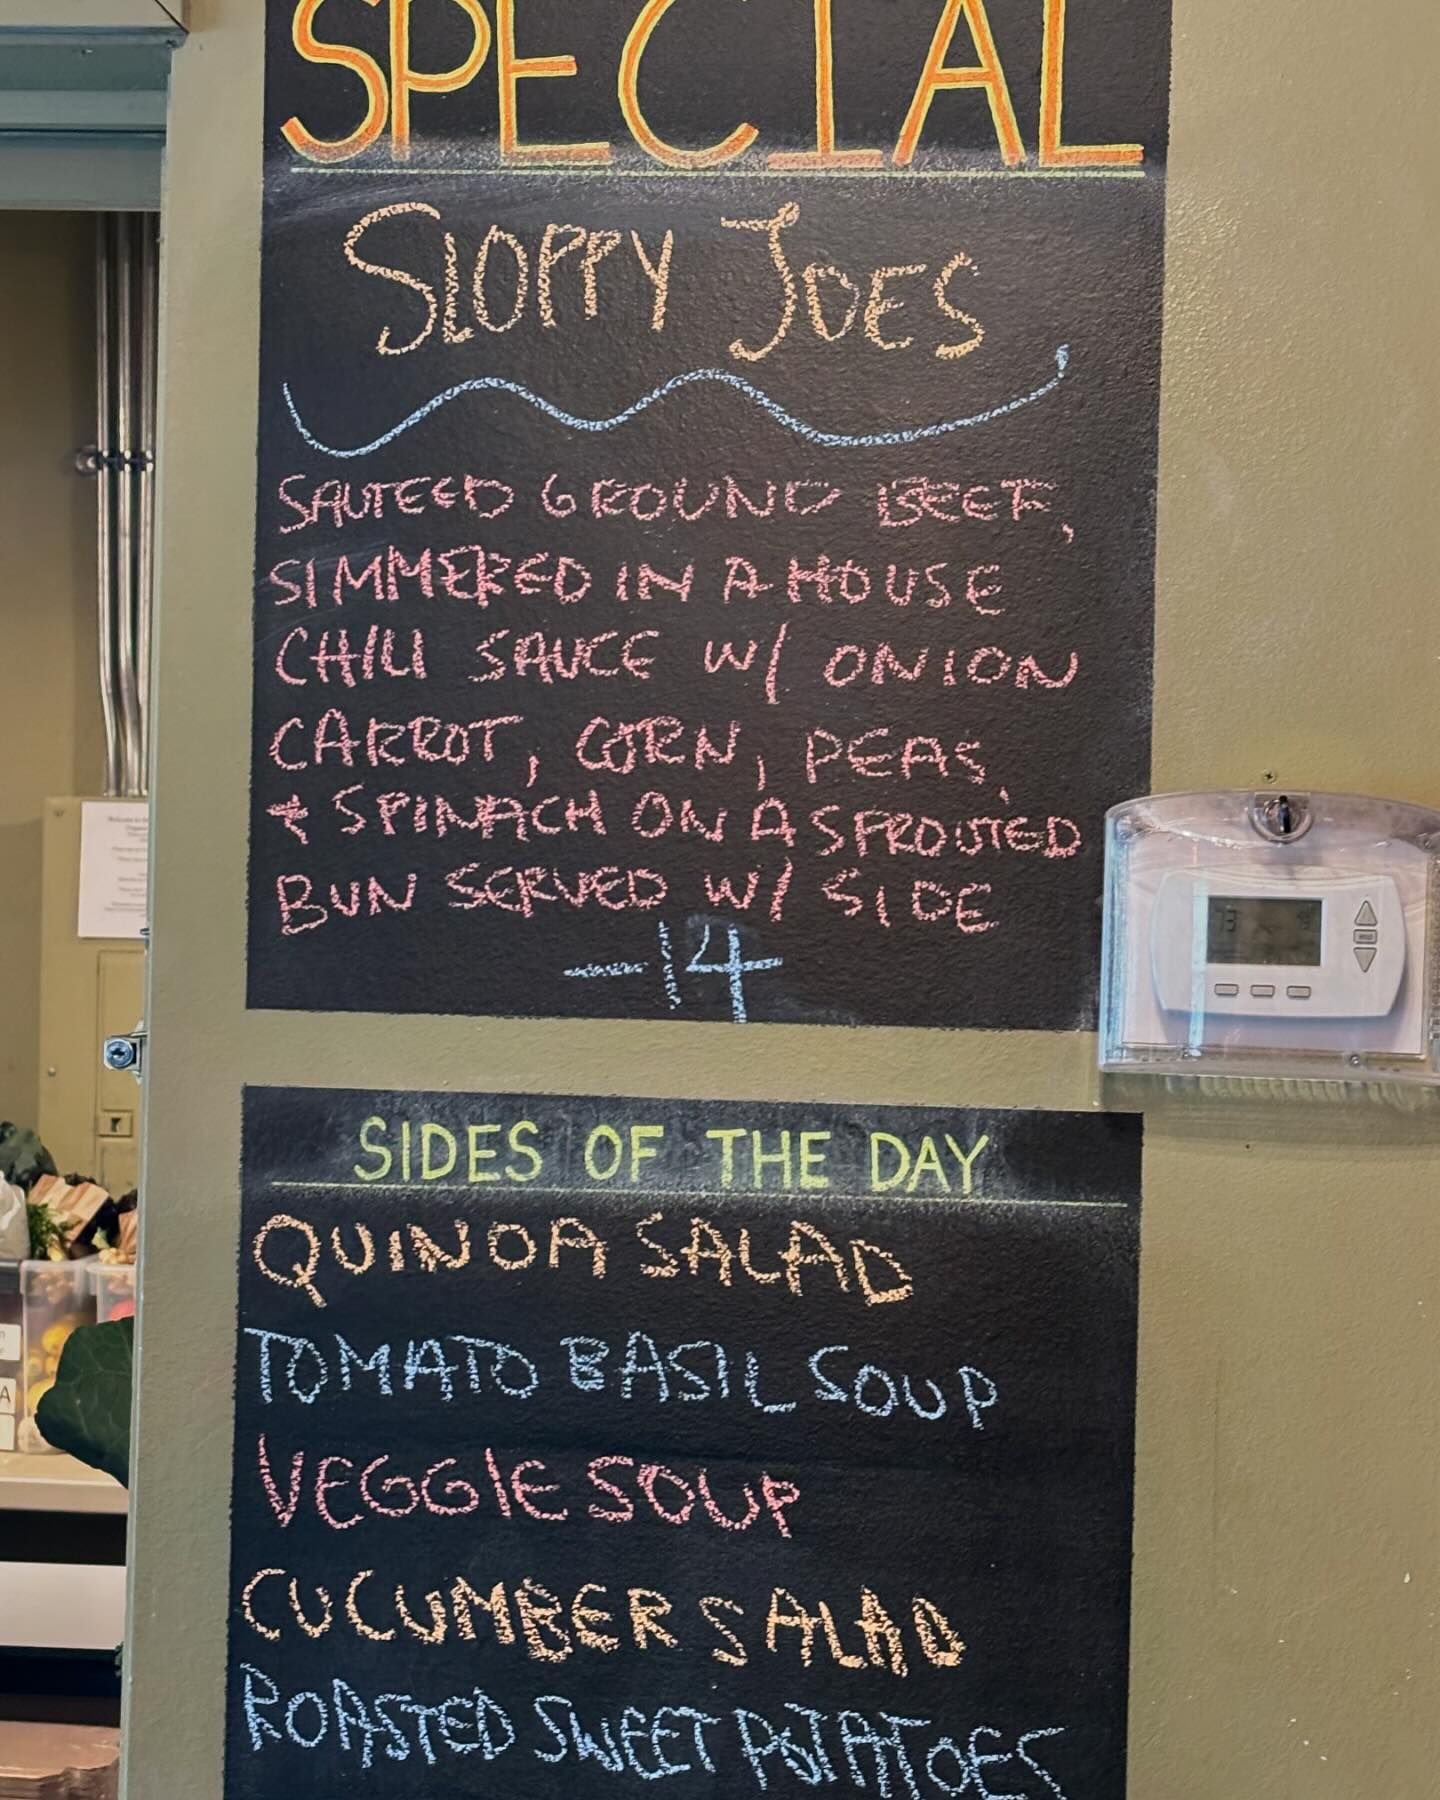 SPECIAL
SLOPPY JOES
SAUTEED GROUND BEEF,
SIMMERED IN A HOUSE
CHILI SAUCE W/ ONION
CARROT, CORN, PEAS,
& SPINACH ON A SPROUTED
BUN SERVED W/ SIDE
-14
73
SIDES OF THE DAY
QUINOA SALAD
TOMATO BASIL SOUP
VEGGIE SOUP
CUCUMBER SALAD
ROASTED SWEET POTATOES